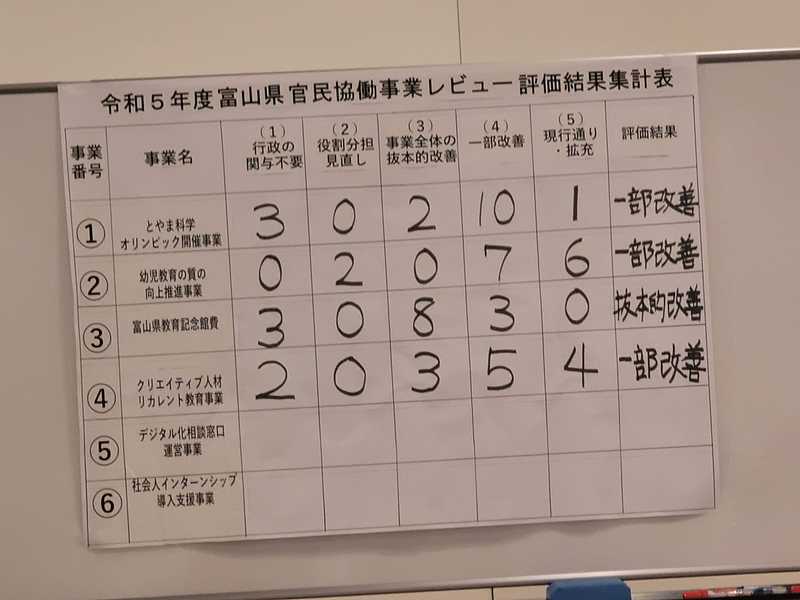 令和５年度富山県官民協働事業レビュー評価結果集計表
事業
番号
事業名
（１）
行政の
関与不要
（２）
役割分担
見直し
（３）
事業全体の
抜本的改善
（４）
一部改善
（５）
現行通り
・拡充
評価結果
① とやま科学
オリンピック開催事業 3 0 2 10 1 一部改善
② 幼児教育の質の
向上推進事業 0 2 0 7 6 一部改善
③ 富山県教育記念館費 3 0 8 3 0 抜本的改善
④ クリエイティブ人材
リカレント教育事業 2 0 3 5 4 一部改善
⑤ デジタル化相談窓口
運営事業
⑥ 社会人インターンシップ
導入支援事業